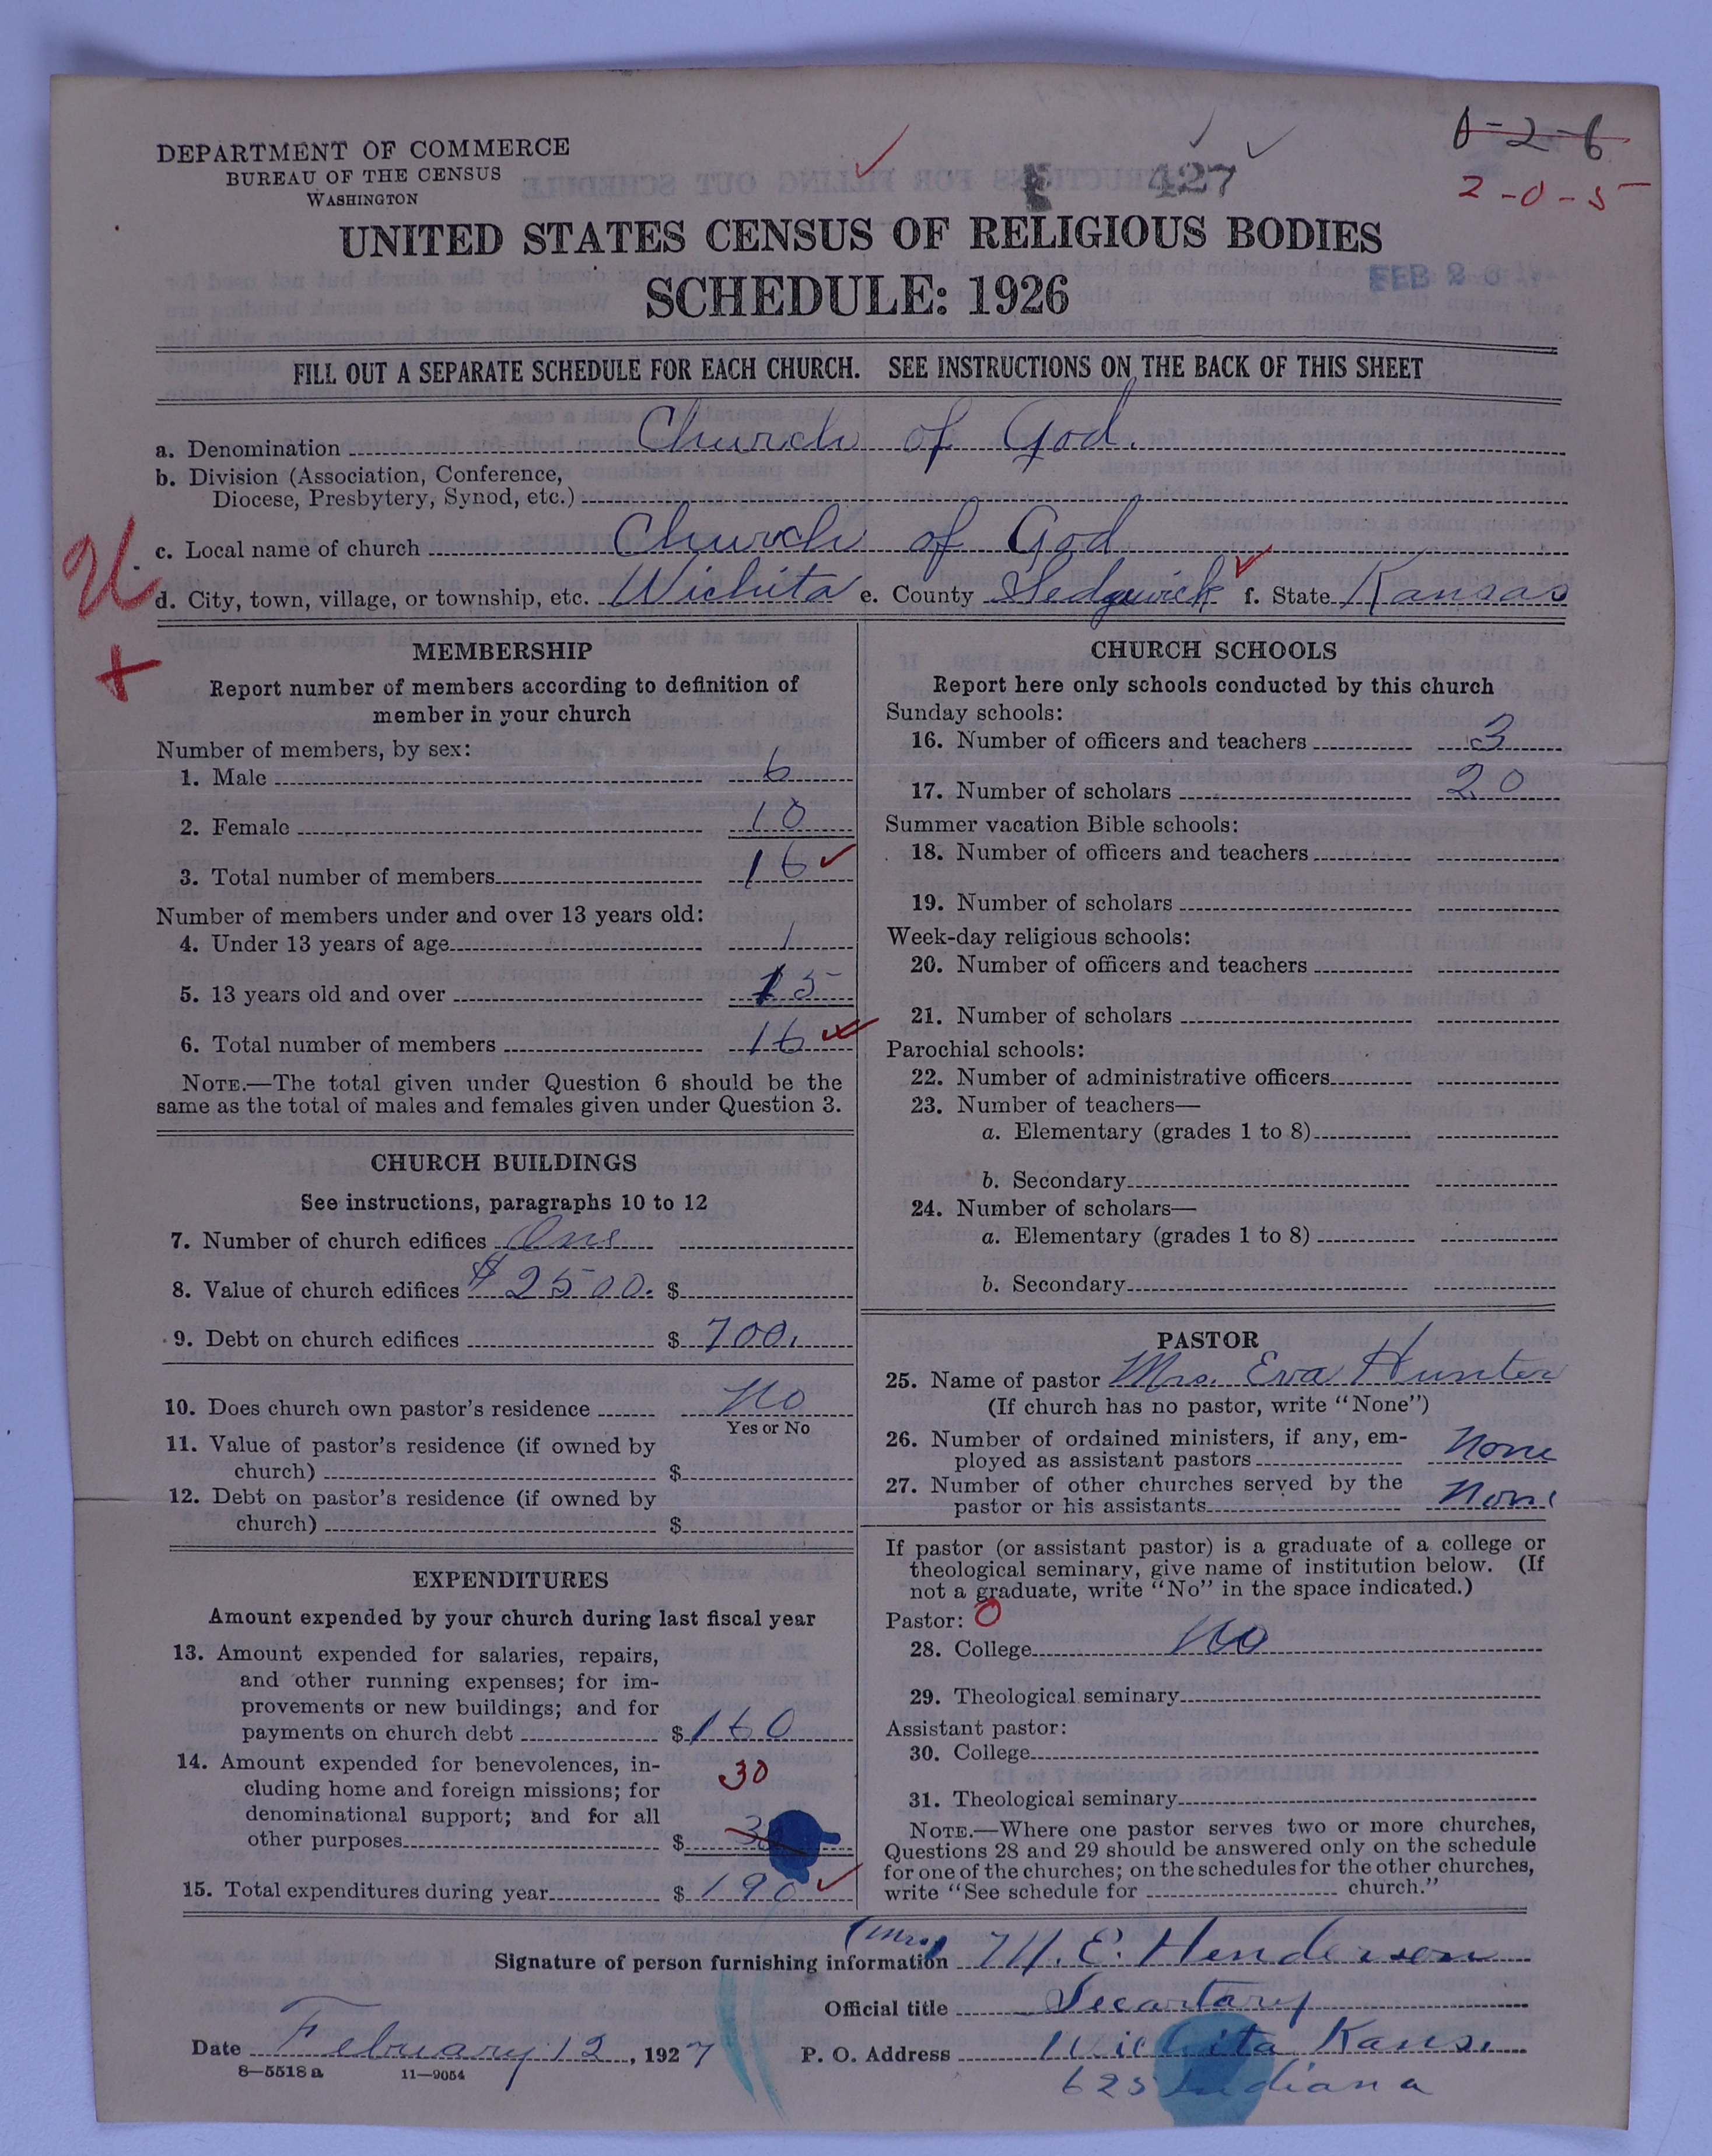 DEPARTMENT OF COMMERCE
BUREAU OF THE CENSUS
WASHINGTON
427
0-2-6
2-0-5
UNITED STATES CENSUS OF RELIGIOUS BODIES
SCHEDULE: 1926
FEB 20
FILL OUT A SEPARATE SCHEDULE FOR EACH CHURCH. SEE INSTRUCTIONS ON THE BACK OF THIS SHEET
a. Denomination Church of God.
b. Division (Association, Conference,
Diocese, Presbytery, Synod, etc.)
c. Local name of church Church of God
d. City, town, village, or township, etc. Wichita e. County Sedgwick f. State Kansas
MEMBERSHIP
Report number of members according to definition of
member in your church
Number of members, by sex:
1. Male 6
2. Female 10
3. Total number of members 16
Number of members under and over 13 years old:
4. Under 13 years of age 1
5. 13 years old and over 15
6. Total number of members 16
NOTE.—The total given under Question 6 should be the
same as the total of males and females given under Question 3.
CHURCH BUILDINGS
See instructions, paragraphs 10 to 12
7. Number of church edifices One
8. Value of church edifices $2500. $
9. Debt on church edifices $ 700.
10. Does church own pastor's residence No
Yes or No
11. Value of pastor's residence (if owned by
church) $
12. Debt on pastor's residence (if owned by
church) $
EXPENDITURES
Amount expended by your church during last fiscal year
13. Amount expended for salaries, repairs,
and other running expenses; for im-
provements or new buildings; and for
payments on church debt $160
14. Amount expended for benevolences, in-
cluding home and foreign missions; for 30
denominational support; and for all
other purposes $
15. Total expenditures during year $190
CHURCH SCHOOLS
Report here only schools conducted by this church
Sunday schools:
16. Number of officers and teachers 3
17. Number of scholars 20
Summer vacation Bible schools:
18. Number of officers and teachers
19. Number of scholars
Week-day religious schools:
20. Number of officers and teachers
21. Number of scholars
Parochial schools:
22. Number of administrative officers
23. Number of teachers—
a. Elementary (grades 1 to 8)
b. Secondary
24. Number of scholars—
a. Elementary (grades 1 to 8)
b. Secondary
PASTOR
25. Name of pastor Mrs. Eva Hunter
(If church has no pastor, write "None")
26. Number of ordained ministers, if any, em-
ployed as assistant pastors None
27. Number of other churches served by the
pastor or his assistants None
If pastor (or assistant pastor) is a graduate of a college or
theological seminary, give name of institution below. (If
not a graduate, write "No" in the space indicated.)
Pastor: O
28. College No
29. Theological seminary
Assistant pastor:
30. College
31. Theological seminary
NOTE.—Where one pastor serves two or more churches,
Questions 28 and 29 should be answered only on the schedule
for one of the churches; on the schedules for the other churches,
write "See schedule for church."
Signature of person furnishing information (Mrs) M. E. Henderson
Official title Secartary
Date February 12, 1927 P. O. Address Wichita Kans.
8—5518 a 11—9054
625 Indiana